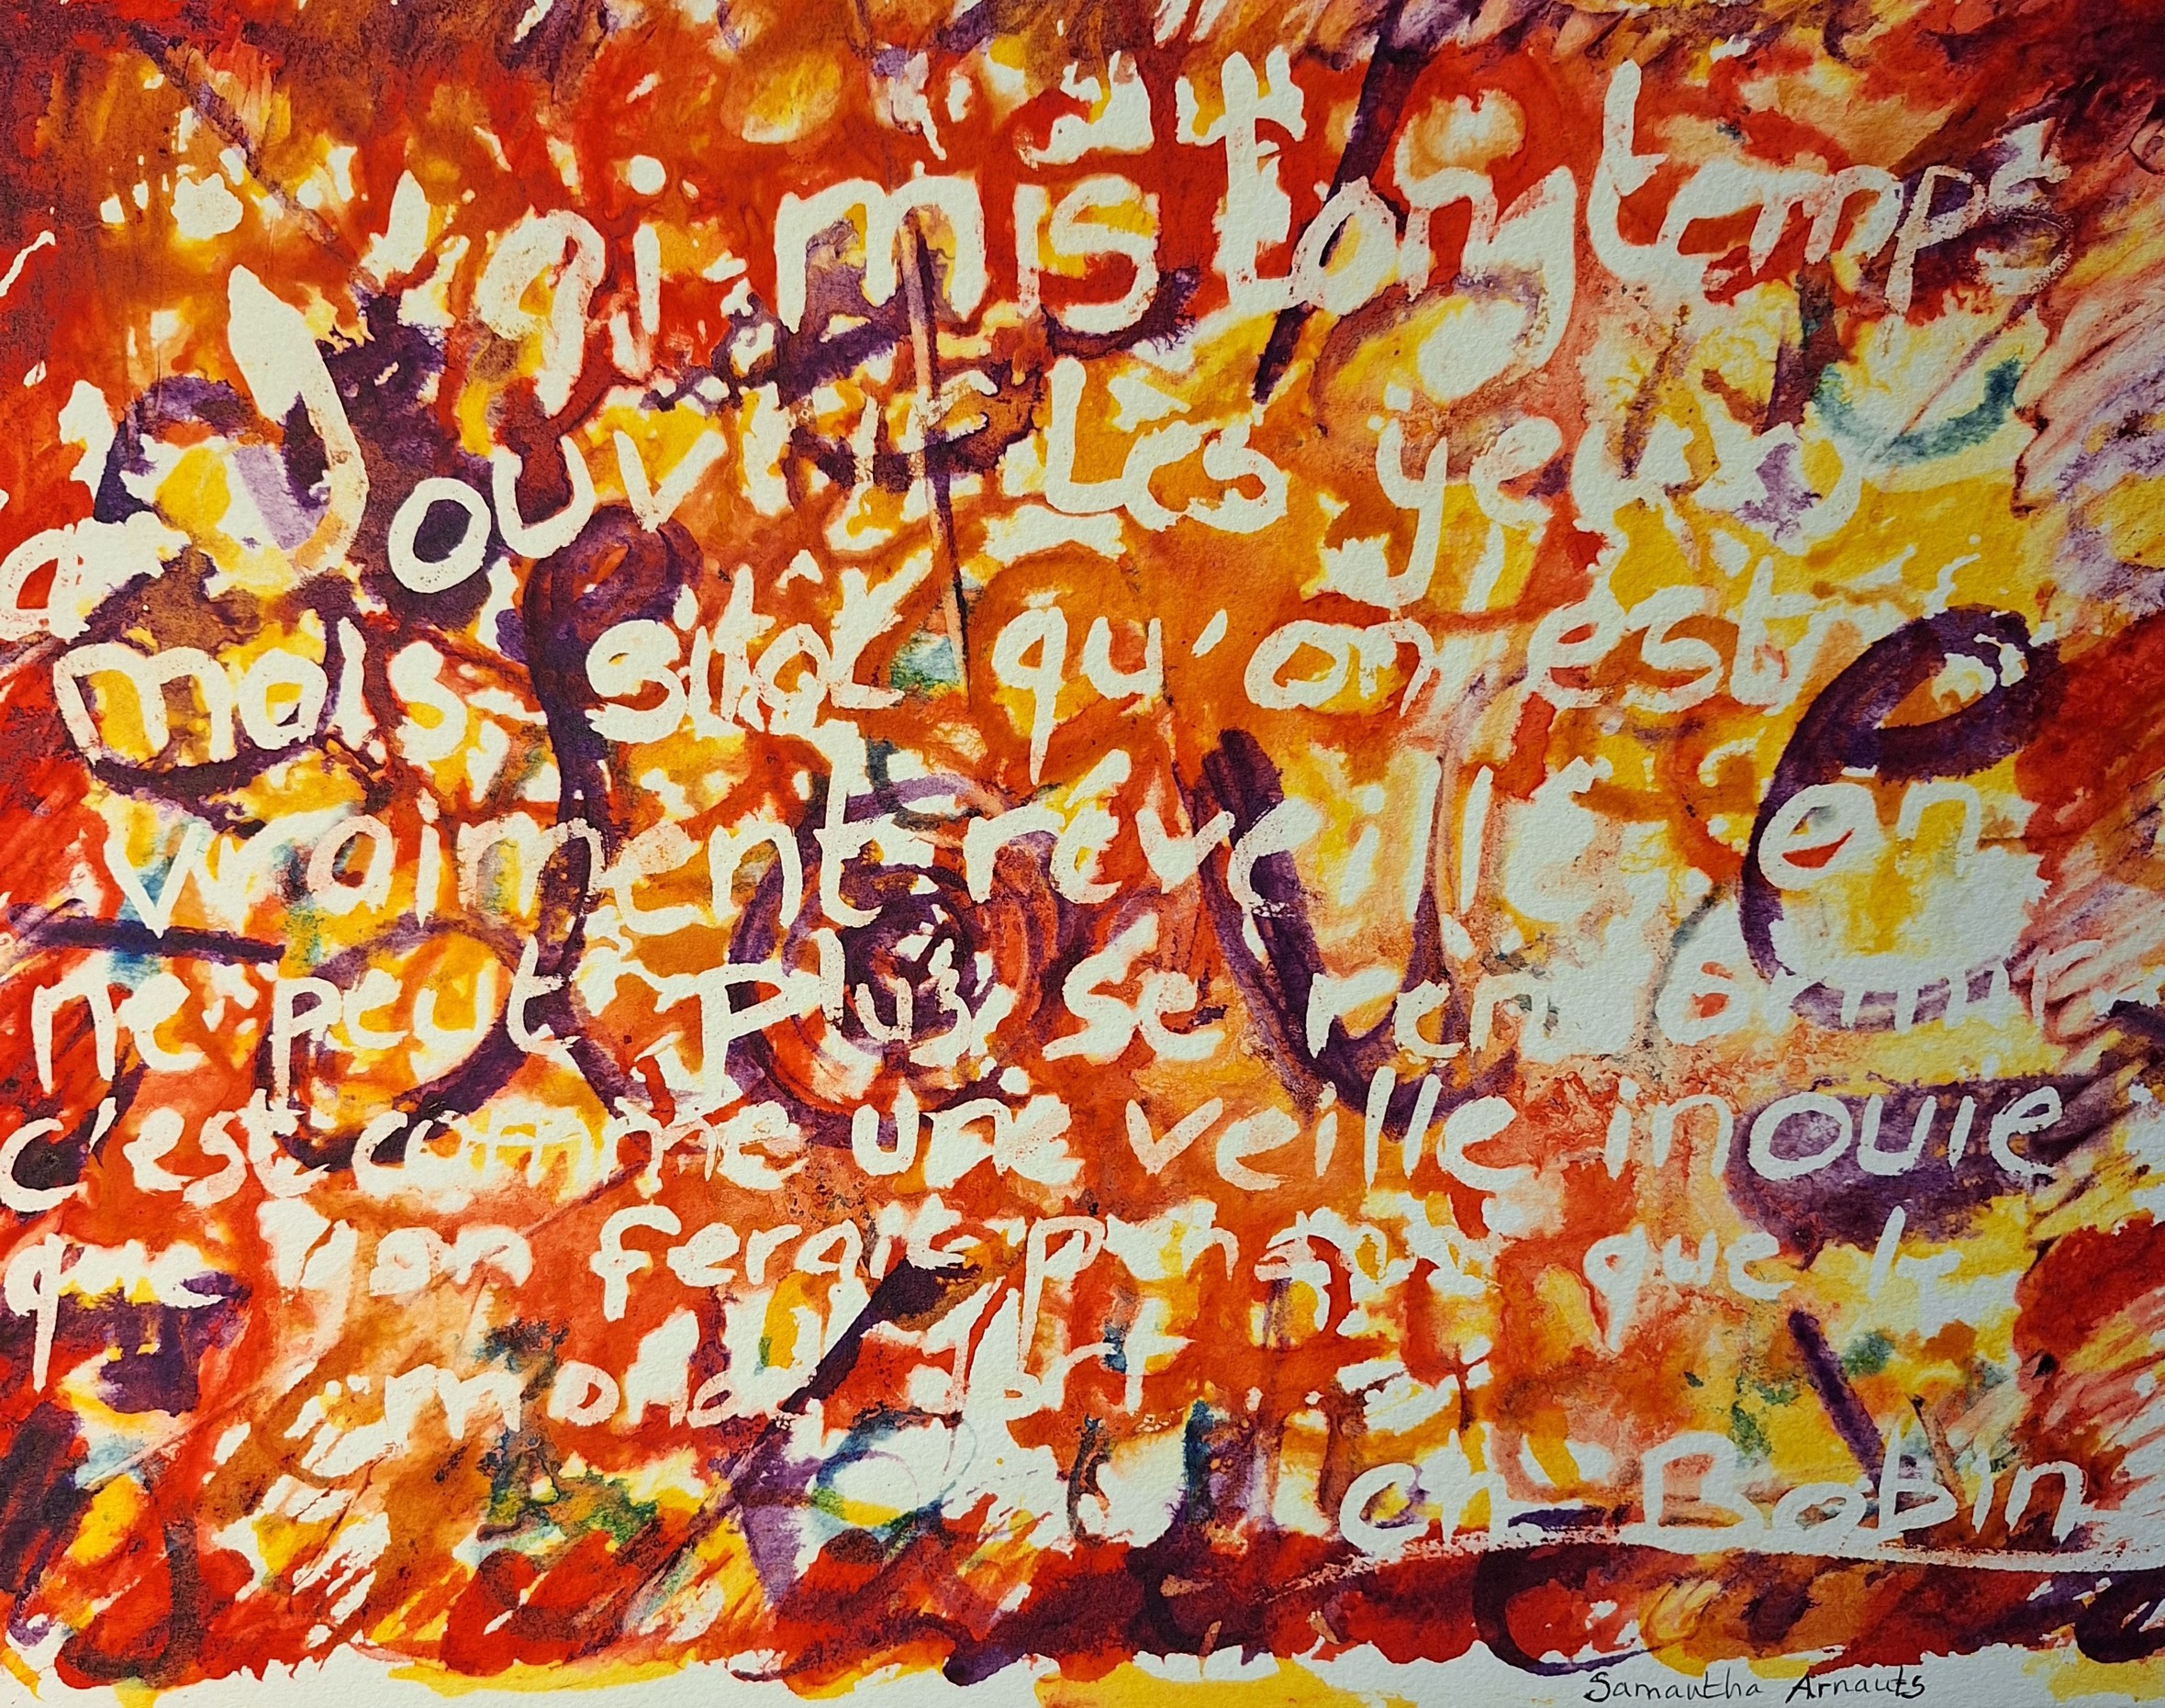 J'ai mis longtemps
a ouvrir Les yeux
mais sitôt qu'on est
vraiment réveillé on
ne peut plus se rendormir
c'est comme une veille inouïe
que l'on ferait pendant que le
monde dort
ch Bobin
Samantha Arnauts